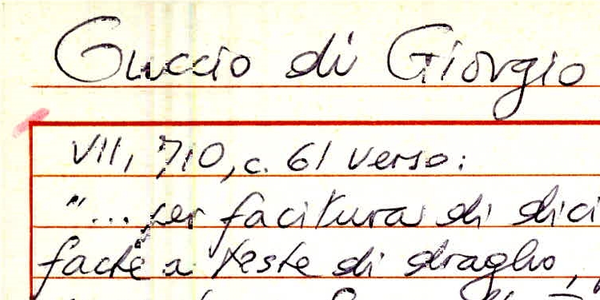 Guccio di Giorgio
VII, 710, c. 61 verso:
"... per facitura di dici
facte a teste di dragho,